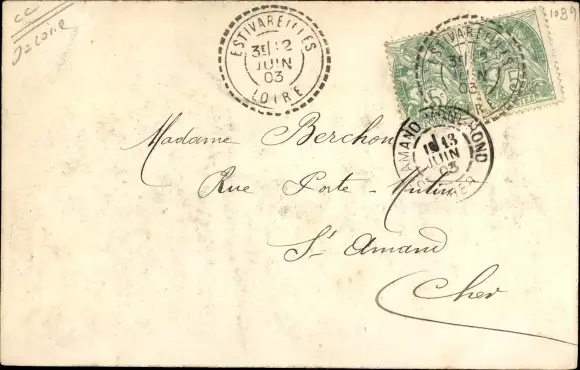 cc
1039
ESTIVAREILLES
3E 12
JUIN
03
LOIRE
ESTIVAREILLES
3E 12
JUIN
03
Madame Berchon
Rue Porte-Mutin
St Amand
Cher
AMAND MONTROND
13
JUIN
03
CHER